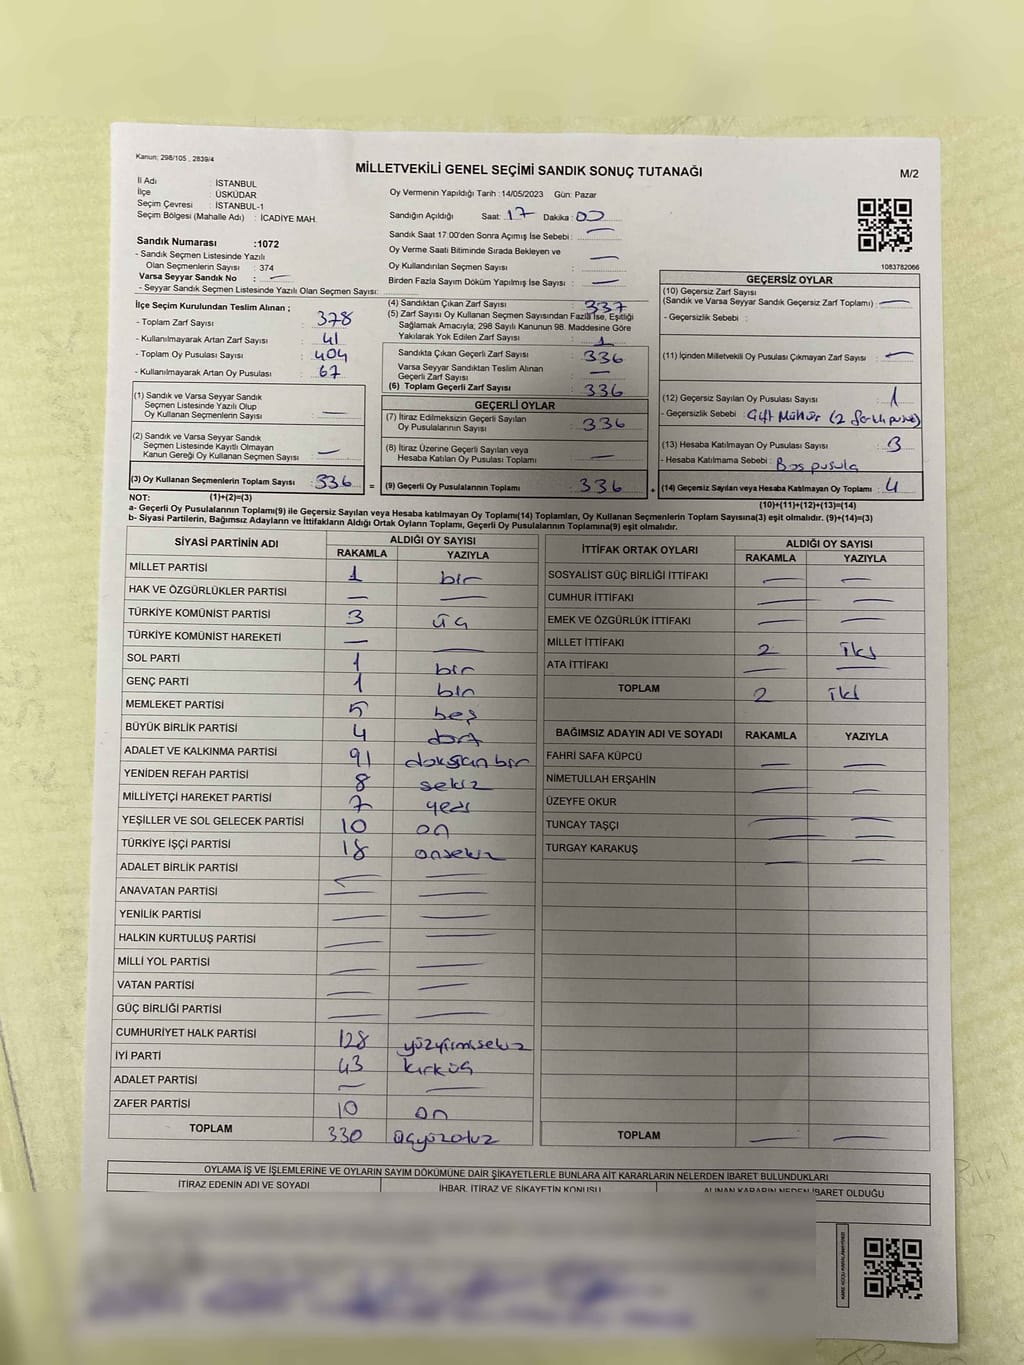 Kanun; 298/105 , 2839/4
MİLLETVEKİLİ GENEL SEÇİMİ SANDIK SONUÇ TUTANAĞI
M/2
İl Adı : İSTANBUL
İlçe : ÜSKÜDAR
Seçim Çevresi : İSTANBUL-1
Seçim Bölgesi (Mahalle Adı) : İCADİYE MAH.
Oy Vermenin Yapıldığı Tarih : 14/05/2023 Gün: Pazar
Sandığın Açıldığı Saat: 17 Dakika : 00
Sandık Saat 17:00'den Sonra Açımış İse Sebebi : —
Oy Verme Saati Bitiminde Sırada Bekleyen ve
Oy Kullandırılan Seçmen Sayısı : —
Birden Fazla Sayım Döküm Yapılmış İse Sayısı : —
1083782066
Sandık Numarası :1072
- Sandık Seçmen Listesinde Yazılı
Olan Seçmenlerin Sayısı : 374
Varsa Seyyar Sandık No : —
- Seyyar Sandık Seçmen Listesinde Yazılı Olan Seçmen Sayısı:
İlçe Seçim Kurulundan Teslim Alınan ;
- Toplam Zarf Sayısı : 378
- Kullanılmayarak Artan Zarf Sayısı : 41
- Toplam Oy Pusulası Sayısı : 404
- Kullanılmayarak Artan Oy Pusulası : 67
(1) Sandık ve Varsa Seyyar Sandık
Seçmen Listesinde Yazılı Olup
Oy Kullanan Seçmenlerin Sayısı : —
(2) Sandık ve Varsa Seyyar Sandık
Seçmen Listesinde Kayıtlı Olmayan
Kanun Gereği Oy Kullanan Seçmen Sayısı : —
(3) Oy Kullanan Seçmenlerin Toplam Sayısı : 336 =
(4) Sandıktan Çıkan Zarf Sayısı : 337
(5) Zarf Sayısı Oy Kullanan Seçmen Sayısından Fazla İse, Eşitliği
Sağlamak Amacıyla; 298 Sayılı Kanunun 98. Maddesine Göre
Yakılarak Yok Edilen Zarf Sayısı : 1
Sandıkta Çıkan Geçerli Zarf Sayısı : 336
Varsa Seyyar Sandıktan Teslim Alınan
Geçerli Zarf Sayısı : —
(6) Toplam Geçerli Zarf Sayısı : 336
GEÇERLİ OYLAR
(7) İtiraz Edilmeksizin Geçerli Sayılan
Oy Pusulalarının Sayısı : 336
(8) İtiraz Üzerine Geçerli Sayılan veya
Hesaba Katılan Oy Pusulası Toplamı : —
(9) Geçerli Oy Pusulalarının Toplamı : 336 +
GEÇERSİZ OYLAR
(10) Geçersiz Zarf Sayısı
(Sandık ve Varsa Seyyar Sandık Geçersiz Zarf Toplamı) : —
- Geçersizlik Sebebi :
(11) İçinden Milletvekili Oy Pusulası Çıkmayan Zarf Sayısı : —
(12) Geçersiz Sayılan Oy Pusulası Sayısı : 1
- Geçersizlik Sebebi : Çift Mühür (2 farklı
(13) Hesaba Katılmayan Oy Pusulası Sayısı : 3
- Hesaba Katılmama Sebebi : Boş pusula
(14) Geçersiz Sayılan veya Hesaba Katılmayan Oy Toplamı : 4
(10)+(11)+(12)+(13)=(14)
NOT: (1)+(2)=(3)
a- Geçerli Oy Pusulalarının Toplamı(9) ile Geçersiz Sayılan veya Hesaba Katılmayan Oy Toplamı(14) Toplamları, Oy Kullanan Seçmenlerin Toplam Sayısına(3) eşit olmalıdır. (9)+(14)=(3)
b- Siyasi Partilerin, Bağımsız Adayların ve İttifakların Aldığı Ortak Oyların Toplamı, Geçerli Oy Pusulalarının Toplamına(9) eşit olmalıdır.
SİYASİ PARTİNİN ADI ALDIĞI OY SAYISI
RAKAMLA YAZIYLA
MİLLET PARTİSİ 1 bir
HAK VE ÖZGÜRLÜKLER PARTİSİ — —
TÜRKİYE KOMÜNİST PARTİSİ 3 üç
TÜRKİYE KOMÜNİST HAREKETİ — —
SOL PARTİ 1 bir
GENÇ PARTİ 1 bir
MEMLEKET PARTİSİ 5 beş
BÜYÜK BİRLİK PARTİSİ 4 dört
ADALET VE KALKINMA PARTİSİ 91 doksan bir
YENİDEN REFAH PARTİSİ 8 sekiz
MİLLİYETÇİ HAREKET PARTİSİ 7 yedi
YEŞİLLER VE SOL GELECEK PARTİSİ 10 on
TÜRKİYE İŞÇİ PARTİSİ 18 onsekiz
ADALET BİRLİK PARTİSİ — —
ANAVATAN PARTİSİ — —
YENİLİK PARTİSİ — —
HALKIN KURTULUŞ PARTİSİ — —
MİLLİ YOL PARTİSİ — —
VATAN PARTİSİ — —
GÜÇ BİRLİĞİ PARTİSİ — —
CUMHURİYET HALK PARTİSİ 128 yüzyirmisekiz
İYİ PARTİ 43 kırküç
ADALET PARTİSİ — —
ZAFER PARTİSİ 10 on
TOPLAM 330 üçyüzotuz
İTTİFAK ORTAK OYLARI ALDIĞI OY SAYISI
RAKAMLA YAZIYLA
SOSYALİST GÜÇ BİRLİĞİ İTTİFAKI — —
CUMHUR İTTİFAKI — —
EMEK VE ÖZGÜRLÜK İTTİFAKI — —
MİLLET İTTİFAKI 2 iki
ATA İTTİFAKI — —
TOPLAM 2 iki
BAĞIMSIZ ADAYIN ADI VE SOYADI RAKAMLA YAZIYLA
FAHRİ SAFA KÜPCÜ — —
NİMETULLAH ERŞAHİN — —
ÜZEYFE OKUR — —
TUNCAY TAŞÇI — —
TURGAY KARAKUŞ — —
TOPLAM — —
OYLAMA İŞ VE İŞLEMLERİNE VE OYLARIN SAYIM DÖKÜMÜNE DAİR ŞİKAYETLERLE BUNLARA AİT KARARLARIN NELERDEN İBARET BULUNDUKLARI
İTİRAZ EDENİN ADI VE SOYADI İHBAR, İTİRAZ VE ŞİKAYETİN KONUSU ALINAN KARARIN NEDEN İBARET OLDUĞU